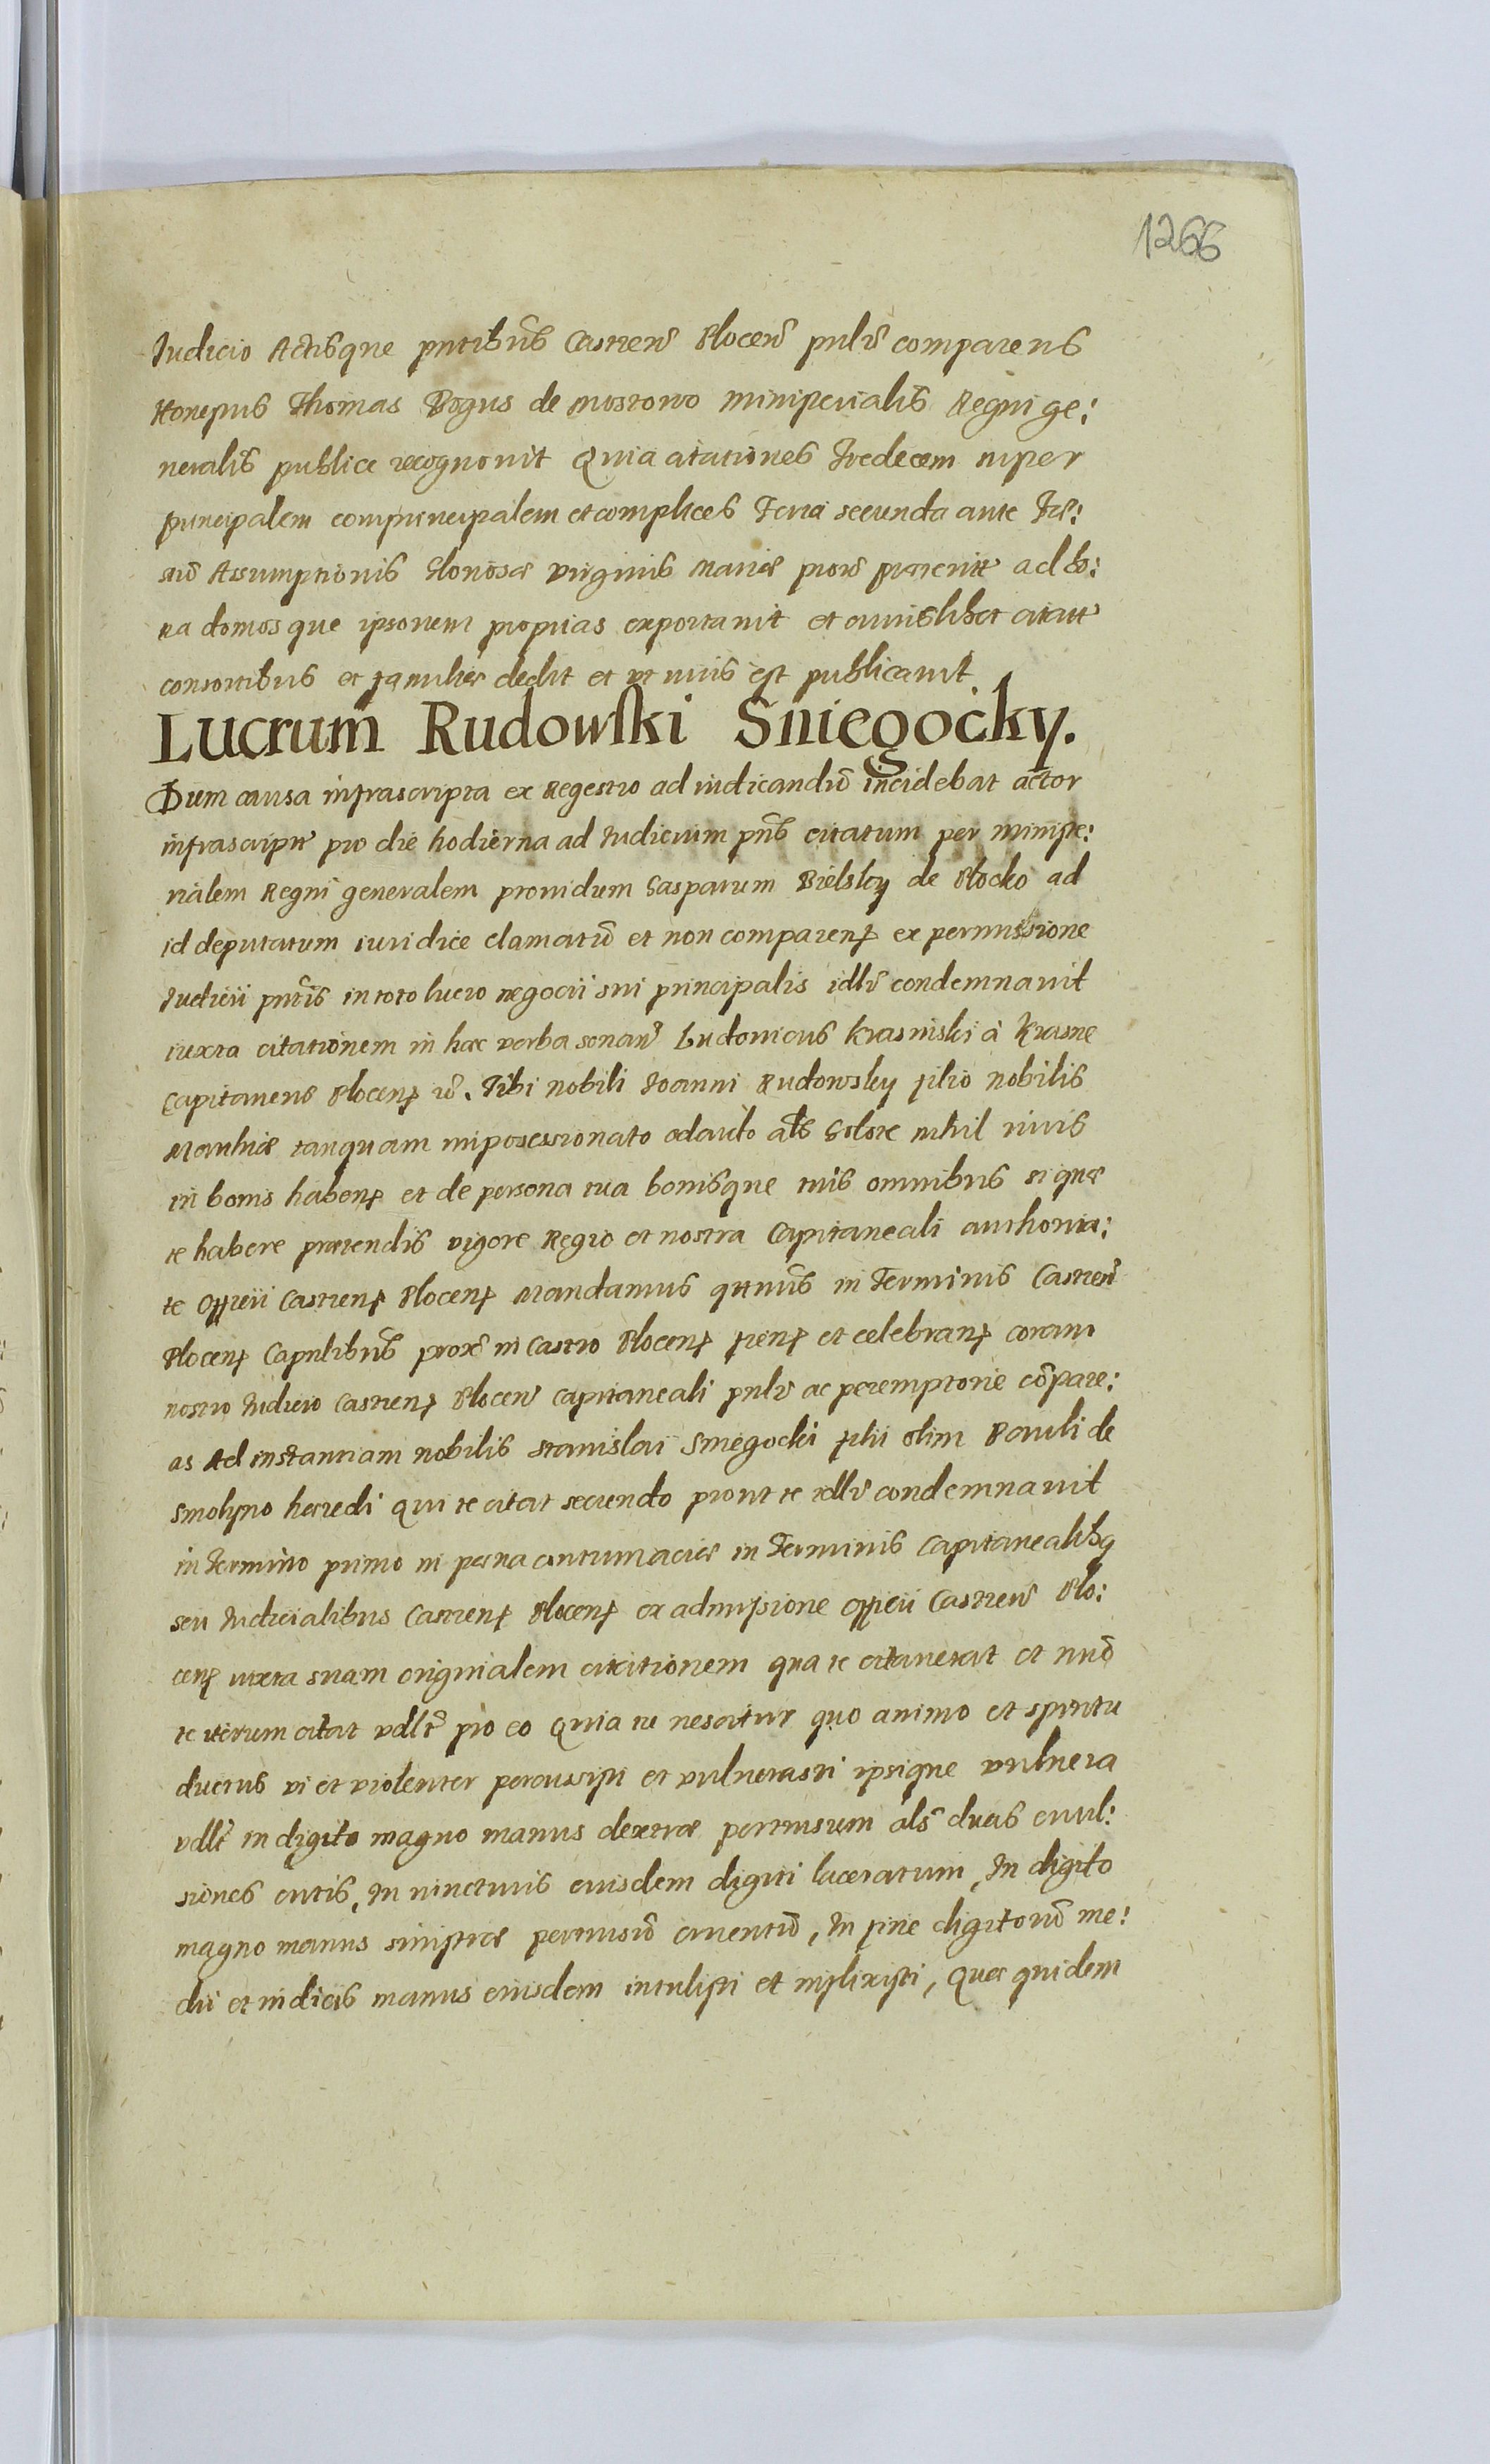 1266
Iudicio Actisque pntibus Castren Plocen pnlr comparens
Honestus Thomas Bogus de Mostowo ministerialis Regni ge:
neralis publice recognovit Quia citationes tredecem super
principalem comprincipalem et complices Feria secunda ante Fes:
tum Assumptionis Gloriosae Virginis Mariae prox praeterit ad bo:
na domosque ipsorum proprias exportavit et cuiuslibet citatt
consortibus et familiae dedit et ut iuris est publicavit
Lucrum Rudowski Sniegocky.
Dum causa infrascripta ex Regestro ad iudicandum incidebat actor
infrascript pro die hodierna ad Iudicium pns citatum per ministe:
rialem Regni generalem providum Gasparum Bielsky de Plocko ad
id deputatum iuridice clamatum et non comparen ex permissione
Iudicii pntis in toto lucro negocii sui principalis idlr condemnavit
iuxta citationem in haec verba sonan Ludovicus Krasinski à Krasne
Capitaneus Plocen etc. Tibi nobili Ioanni Rudowsky filio nobilis
Mathiae tanquam impossessionato odarto als Golote nihil iuris
in bonis haben et de persona tua bonisque tuis omnibus si quae
te habere praetendis vigore Regio et nostra Capitaneali authorita:
te Officii Castren Plocen Mandamus qttnus in Terminis Castren
Plocen Capnlibus prox in Castro Plocen fien et celebran coram
nostro Iudicio Castren Plocen Capitaneali pnlr ac peremptorie compare:
as Ad instantiam nobilis Stanislai Sniegocki filii olim Pauli de
Smolyno haeredi Qui te citat secundo prout te idlr condemnavit
in Termino primo in paena contumaciae in Terminis Capitanealibq
seu Iudicialibus Castren Plocen ex admissione Officii Castren Plo:
cen iuxta suam originalem citationem qua te citaverat et nunc
te iterum citat vdlt pro eo Quia tu nescitur quo animo et spiritu
ductus vi et violenter percussisti et vulnerasti ipsique vulnera
vdlt in digito magno manus dextrae pertusum als duas evul:
siones cutis, In iuncturis eiusdem digiti laceratum, In digito
magno manus sinistrae pertusum cruentum, In fine digitorum me:
dii et indicis manus eiusdem intulisti et inflixisti, Quae quidem